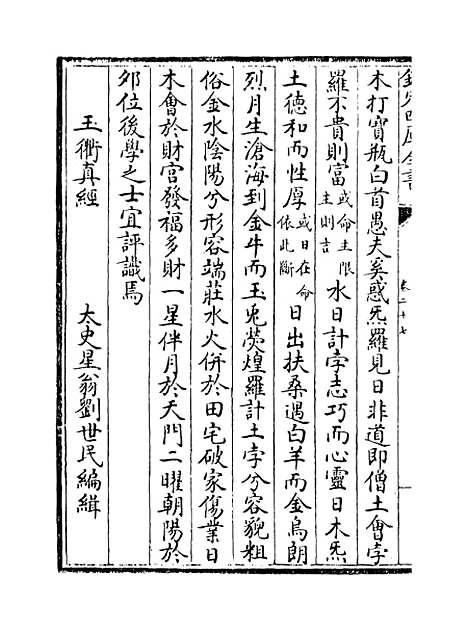 欽定四庫全書
卷二十七
木打寳瓶白首愚夫奚惑炁羅見日非道即僧土會孛
羅不貴則富或命主限主則言水日計孛志巧而心靈日木炁
土德和而性厚或日在命依此斷日出扶桑遇白羊而金烏朗
烈月生滄海到金牛而玉兎熒煌羅計土孛兮容貌粗
俗金水陰陽兮形容端莊水火併於田宅破家傷業日
木會於財宫發福多財一星伴月於天門二曜朝陽於
夘位後學之士宜評議焉
玉衡真經
太史星翁劉世民編緝